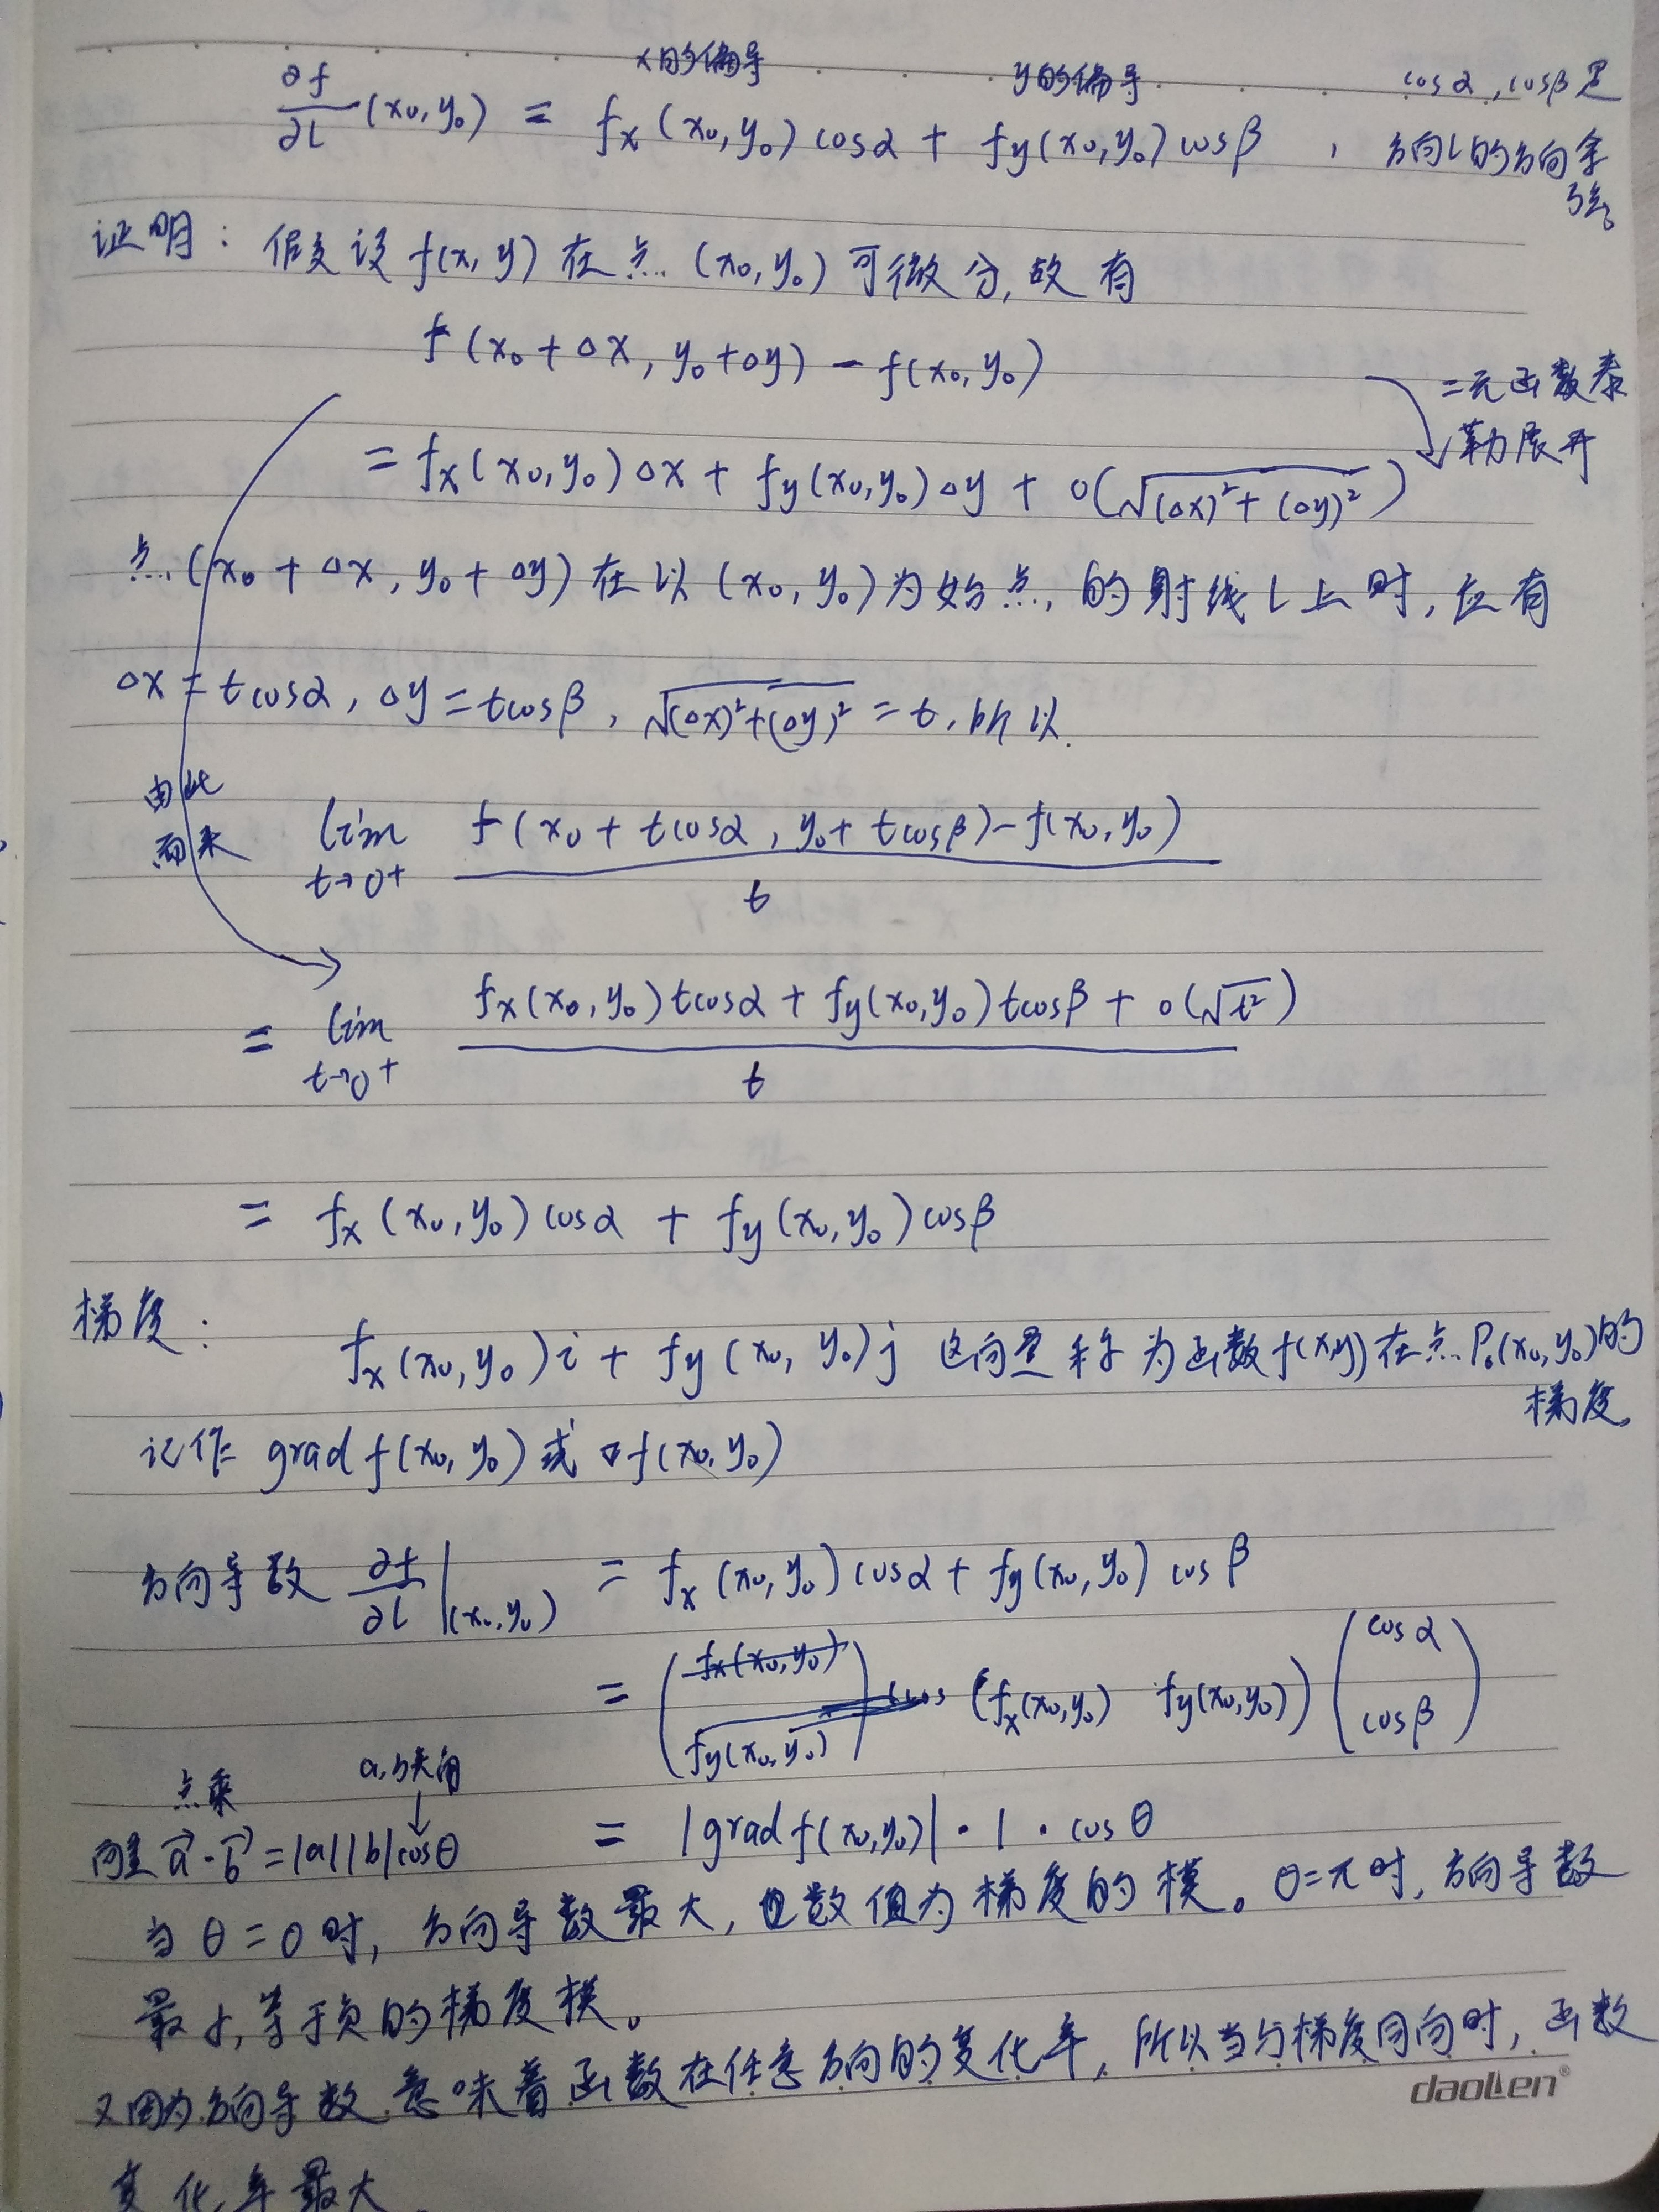 x的偏导 y的偏导 cosα, cosβ是
∂f/∂l (x₀,y₀) = fx(x₀,y₀)cosα + fy(x₀,y₀)cosβ , 方向l的方向余
弦。
证明: 假设f(x,y)在点(x₀,y₀)可微分,故有
f(x₀+Δx, y₀+Δy) - f(x₀,y₀)
二元函数泰
勒展开
= fx(x₀,y₀)Δx + fy(x₀,y₀)Δy + o(√((Δx)²+(Δy)²))
点(x₀+Δx, y₀+Δy)在以(x₀,y₀)为始点的射线l上时,应有
Δx=tcosα, Δy=tcosβ, √((Δx)²+(Δy)²)=t,所以
由此
而来
lim t→0+ (f(x₀+tcosα, y₀+tcosβ)-f(x₀,y₀))/t
= lim t→0+ (fx(x₀,y₀)tcosα + fy(x₀,y₀)tcosβ + o(√t²))/t
= fx(x₀,y₀)cosα + fy(x₀,y₀)cosβ
梯度:
fx(x₀,y₀)i + fy(x₀,y₀)j 这向量称为函数f(x,y)在点P₀(x₀,y₀)的
梯度,
记作 grad f(x₀,y₀)或∇f(x₀,y₀)
方向导数 ∂f/∂l|(x₀,y₀) = fx(x₀,y₀)cosα + fy(x₀,y₀)cosβ
= (fx(x₀,y₀) fy(x₀,y₀)) cos (fx(x₀,y₀) fy(x₀,y₀)) (cosα cosβ)
点乘 a,b夹角
向量 a·b=|a||b|cosθ = |grad f(x₀,y₀)|·1·cosθ
当θ=0时,方向导数最大,且数值为梯度的模。θ=π时,方向导数
最小,等于负的梯度模。
又因为方向导数意味着函数在任意方向的变化率,所以当与梯度同向时,函数
变化率最大.
daoLen®